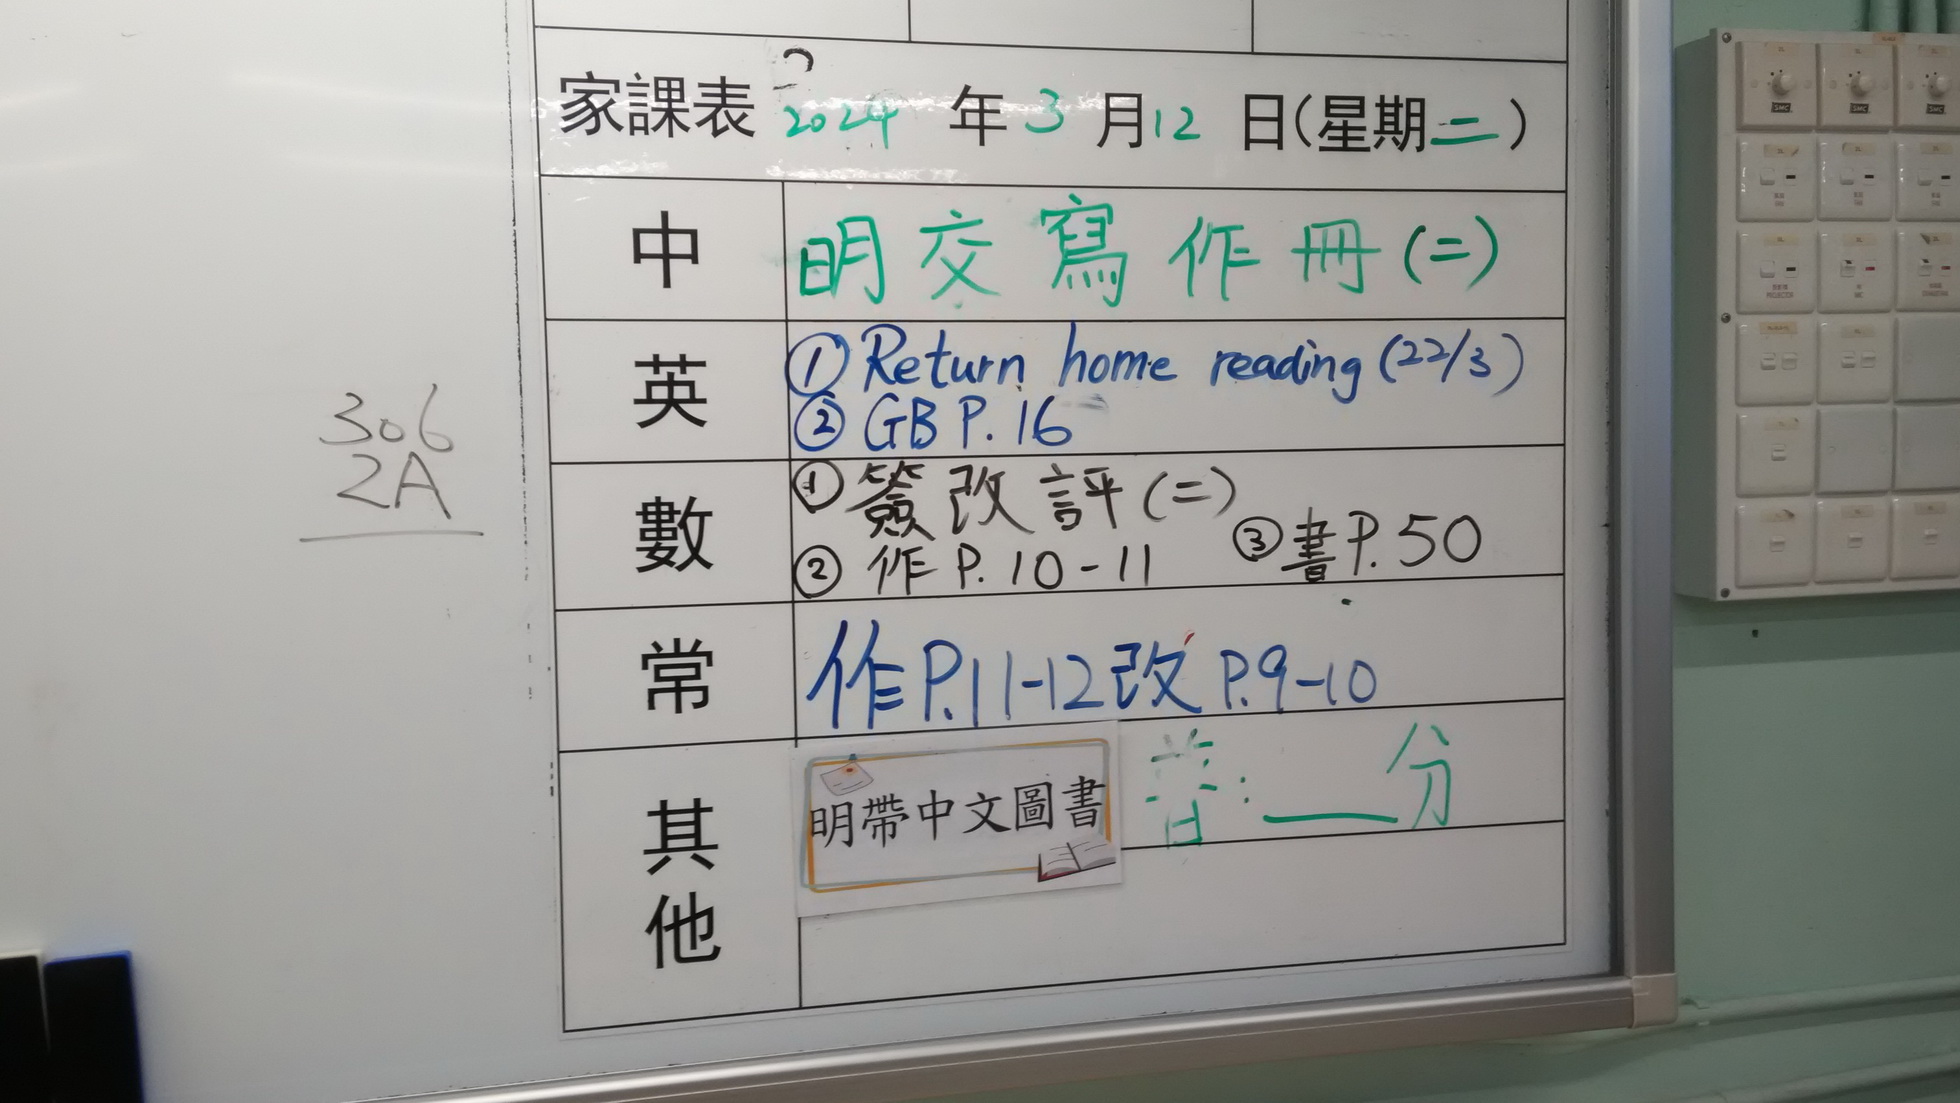 家課表 2024 年 3 月 12 日(星期二)
中 明交寫作冊(二)
英 ① Return home reading (22/3)
② GB P.16
數 ① 簽改評(二)
② 作 P.10-11 ③ 書 P.50
常 作P.11-12 改 P.9-10
其他 明帶中文圖書 普:___分
306
2A